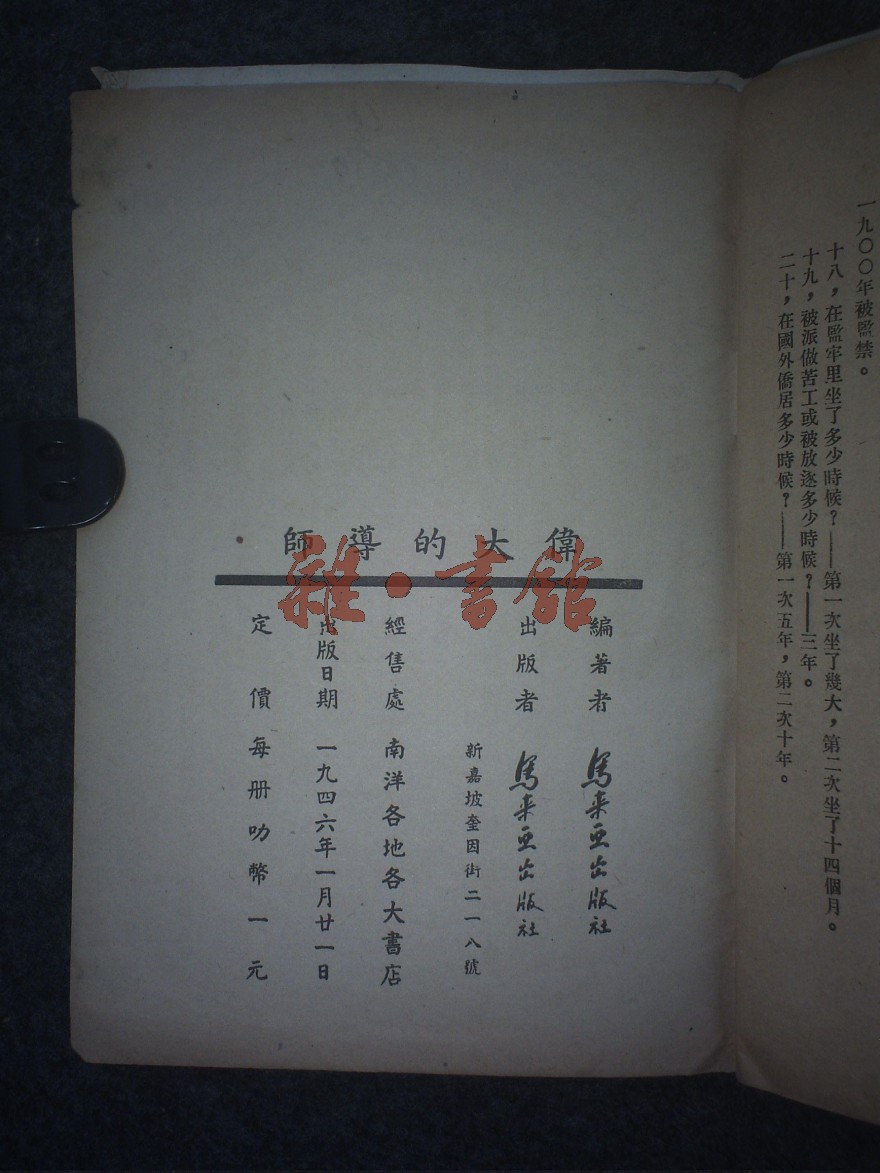 一九〇〇年被監禁。
十八，在監牢里坐了多少時候？——第一次坐了幾大，第二次坐了十四個月。
十九，被派做苦工或被放逐多少時候？——三年。
二十，在國外僑居多少時候？——第一次五年，第二次十年。
師導的大偉
編著者 馬來亞出版社
出版者 馬來亞出版社
新嘉坡奎因街二一八號
經售處 南洋各地各大書店
出版日期 一九四六年一月廿一日
定價 每册叻幣一元
雜·書舘